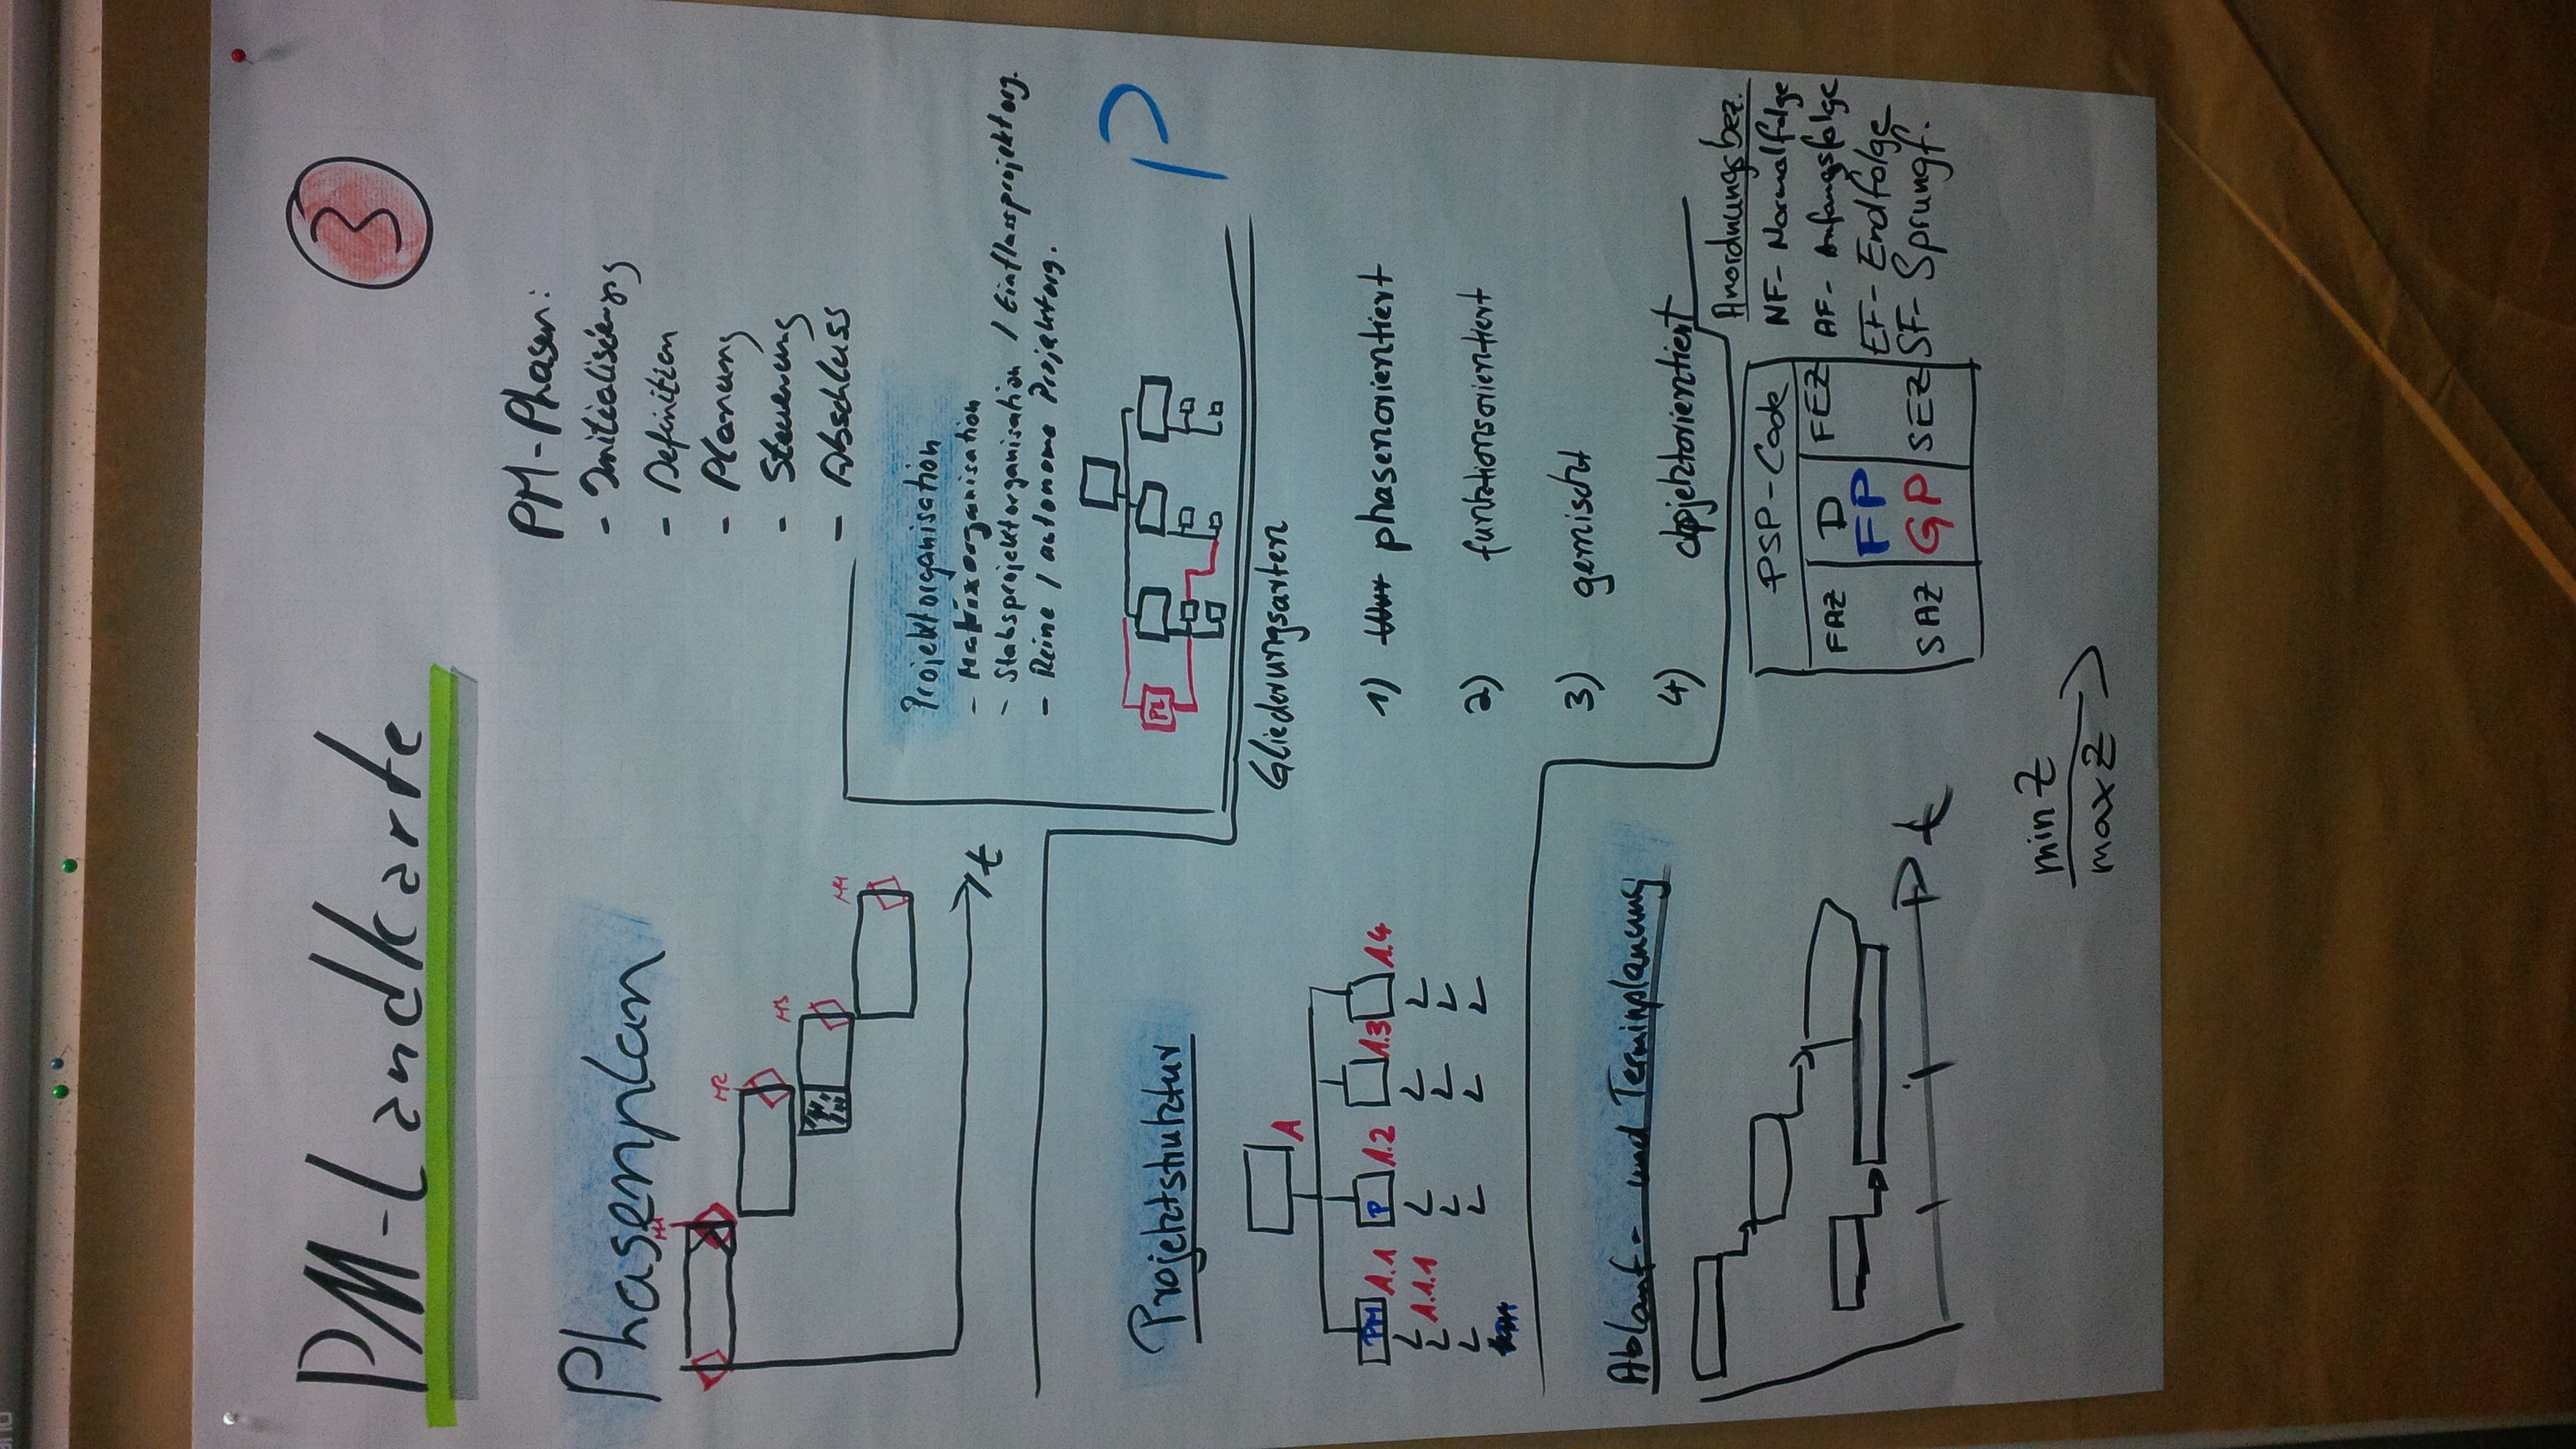 PM-Landkarte
3
Phasenplan
M1
M2
M3
M4
t
PM-Phasen:
- Initialisierung
- Definition
- Planung
- Steuerung
- Abschluss
Projektorganisation
- Matrixorganisation
- Stabsprojektorganisation / Einflussprojektorg.
- Reine / autonome Projektorg.
PL
Projektstruktur
1
PM 1.1
P 1.2
1.3
1.4
1.1.1
Gliederungsarten
1) phasenorientiert
2) funktionsorientiert
3) gemischt
4) objektorientiert
Ablauf- und Terminplanung
t
PSP-Code
FAZ D FEZ
FP
SAZ GP SEZ
Anordnungsbez.
NF- Normalfolge
AF- Anfangsfolge
EF- Endfolge
SF- Sprungf.
min Z
max Z